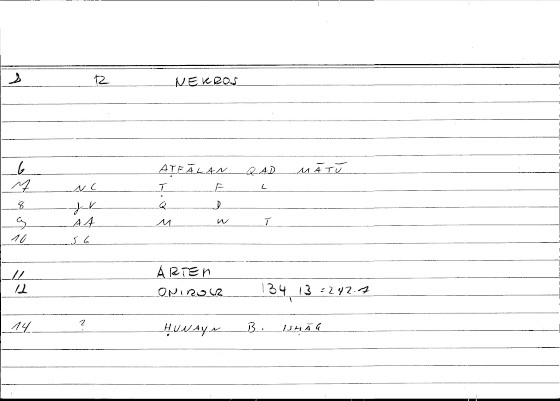 2 12 NEKROS
6 AṬFĀLAN QAD MĀTŪ
7 NC Ṭ F L
8 JV Q D
9 AA M W T
10 SG
11 ARTEM
12 ONIROCR 134, 13 = 242.7
14 ? ḤUNAYN B. ISḤĀQ